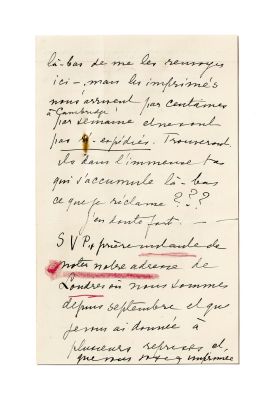 là-bas de me les renvoyer
ici —, mais les imprimés
nous arrivent par centaines
à Cambridge
par semaine et ne sont
pas expédiés. Trouveront
ils dans l'immense tas
qui s'accumule là-bas
ce que je réclame ???
j'en doute fort. —
SVP, prière instante de
noter notre adresse de
Londres où nous sommes
depuis septembre et que
je vous ai donnée à
plusieurs reprises et,
que vous avez imprimée